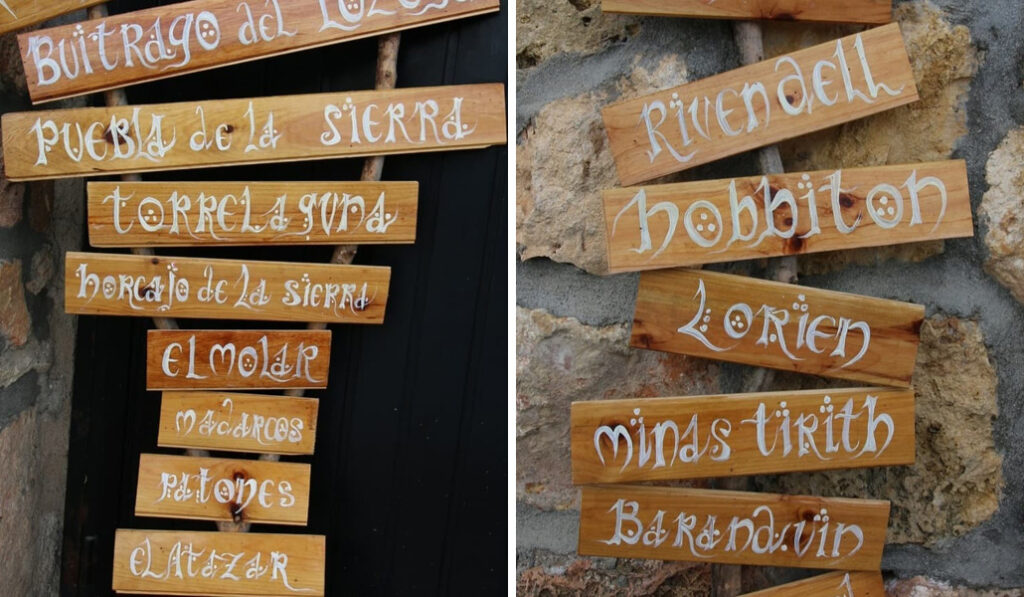 Buitrago del Lozoya
Puebla de la Sierra
Torrelaguna
Horcajo de la Sierra
El Molar
Madarcos
Patones
El Atazar
Rivendell
Hobbiton
Lorien
Minas Tirith
Baranduin